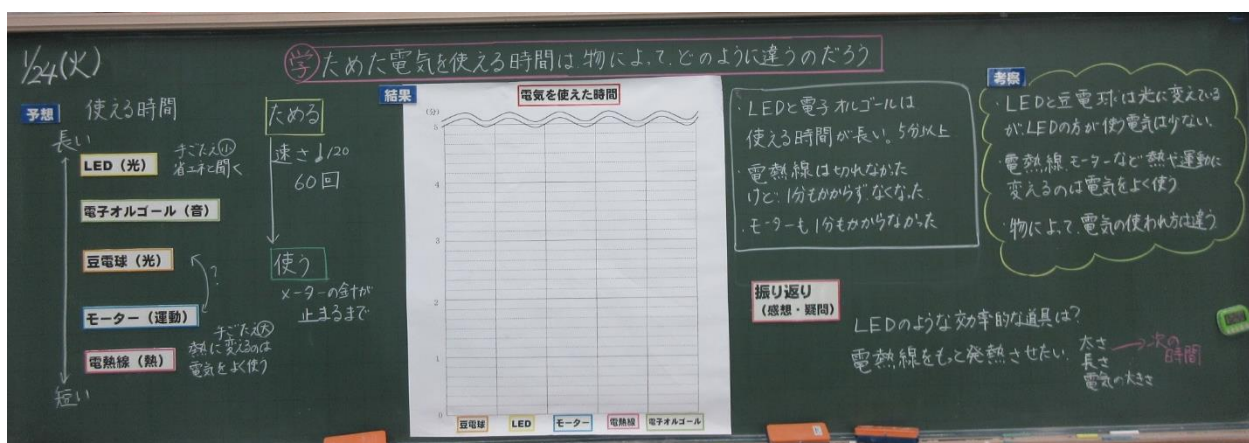 1/24(火)
学 ためた電気を使える時間は、物によって、どのように違うのだろう
予想 使える時間
長い
LED（光）
手ごたえ小
省エネと聞く
電子オルゴール（音）
豆電球（光）
?
モーター（運動）
手ごたえ大
熱に変えるのは
電気をよく使う
電熱線（熱）
短い
ためる
速さ♩120
60回
使う
メーターの針が
止まるまで
結果
電気を使えた時間
(分)
5
4
3
2
1
0
豆電球 LED モーター 電熱線 電子オルゴール
・LEDと電子オルゴールは
使える時間が長い。5分以上
・電熱線は切れなかった
けど、1分もかからずなくなった
・モーターも1分もかからなかった
考察
・LEDと豆電球は光に変えている
が、LEDの方が使う電気は少ない。
・電熱線、モーターなど熱や運動に
変えるのは電気をよく使う
・物によって、電気の使われ方は違う
振り返り
（感想・疑問）
LEDのような効率的な道具は?
電熱線をもっと発熱させたい。
太さ
長さ
電気の大きさ
次の
時間